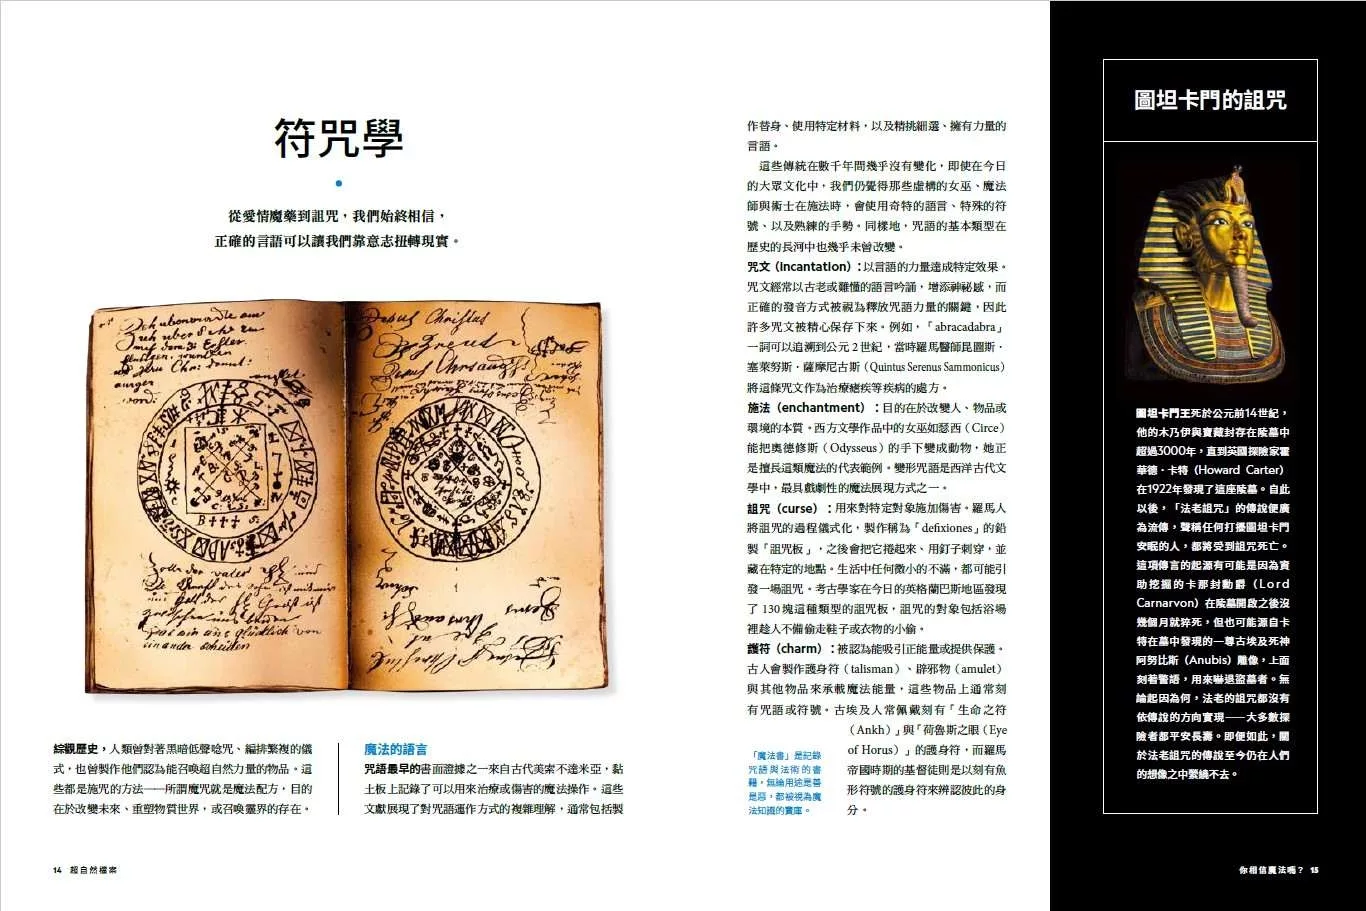 符咒學
從愛情魔藥到詛咒，我們始終相信，
正確的言語可以讓我們靠意志扭轉現實。
綜觀歷史，人類曾對著黑暗低聲唸咒、編排繁複的儀
式，也曾製作他們認為能召喚超自然力量的物品。這
些都是施咒的方法——所謂魔咒就是魔法配方，目的
在於改變未來、重塑物質世界，或召喚靈界的存在。
魔法的語言
咒語最早的書面證據之一來自古代美索不達米亞，黏
土板上記錄了可以用來治療或傷害的魔法操作。這些
文獻展現了對咒語運作方式的複雜理解，通常包括製
作替身、使用特定材料，以及精挑細選、擁有力量的
言語。
這些傳統在數千年間幾乎沒有變化，即使在今日
的大眾文化中，我們仍覺得那些虛構的女巫、魔法
師與術士在施法時，會使用奇特的語言、特殊的符
號、以及熟練的手勢。同樣地，咒語的基本類型在
歷史的長河中也幾乎未曾改變。
咒文（incantation）：以言語的力量達成特定效果。
咒文經常以古老或難懂的語言吟誦，增添神祕感，而
正確的發音方式被視為釋放咒語力量的關鍵，因此
許多咒文被精心保存下來。例如，「abracadabra」
一詞可以追溯到公元 2 世紀，當時羅馬醫師昆圖斯．
塞萊努斯．薩摩尼古斯（Quintus Serenus Sammonicus）
將這條咒文作為治療瘧疾等疾病的處方。
施法（enchantment）：目的在於改變人、物品或
環境的本質。西方文學作品中的女巫如瑟西（Circe）
能把奧德修斯（Odysseus）的手下變成動物，她正
是擅長這類魔法的代表範例。變形咒語是西洋古代文
學中，最具戲劇性的魔法展現方式之一。
詛咒（curse）：用來對特定對象施加傷害。羅馬人
將詛咒的過程儀式化，製作稱為「defixiones」的鉛
製「詛咒板」，之後會把它捲起來、用釘子刺穿，並
藏在特定的地點。生活中任何微小的不滿，都可能引
發一場詛咒。考古學家在今日的英格蘭巴斯地區發現
了 130 塊這種類型的詛咒板，詛咒的對象包括浴場
裡趁人不備偷走鞋子或衣物的小偷。
護符（charm）：被認為能吸引正能量或提供保護。
古人會製作護身符（talisman）、辟邪物（amulet）
與其他物品來承載魔法能量，這些物品上通常刻
有咒語或符號。古埃及人常佩戴刻有「生命之符
（Ankh）」與「荷魯斯之眼（Eye
of Horus）」的護身符，而羅馬
帝國時期的基督徒則是以刻有魚
形符號的護身符來辨認彼此的身
分。
「魔法書」是記錄
咒語與法術的書
籍，無論用途是善
是惡，都被視為魔
法知識的寶庫。
圖坦卡門的詛咒
圖坦卡門王死於公元前14世紀，
他的木乃伊與寶藏封存在陵墓中
超過3000年，直到英國探險家霍
華德．卡特（Howard Carter）
在1922年發現了這座陵墓。自此
以後，「法老詛咒」的傳說便廣
為流傳，聲稱任何打擾圖坦卡門
安眠的人，都將受到詛咒死亡。
這項傳言的起源有可能是因為資
助挖掘的卡那封勳爵（Lord
Carnarvon）在陵墓開啟之後沒
幾個月就猝死，但也可能源自卡
特在墓中發現的一尊古埃及死神
阿努比斯（Anubis）雕像，上面
刻著警語，用來嚇退盜墓者。無
論起因為何，法老的詛咒都沒有
依傳說的方向實現——大多數探
險者都平安長壽。即便如此，關
於法老詛咒的傳說至今仍在人們
的想像之中縈繞不去。
14 超自然檔案
你相信魔法嗎？ 15